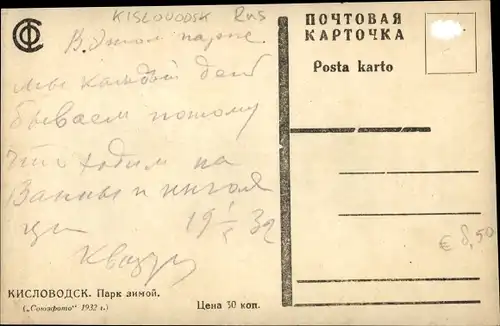 KISLOVODSK Rus
В этом парке
мы каждый день
бываем потому
что ходим на
Ванны и ингаля
ции 19 1/5 32
ПОЧТОВАЯ
КАРТОЧКА
Posta karto
€ 8,50
КИСЛОВОДСК. Парк зимой.
(„Союзфото" 1932 г.)
Цена 30 коп.